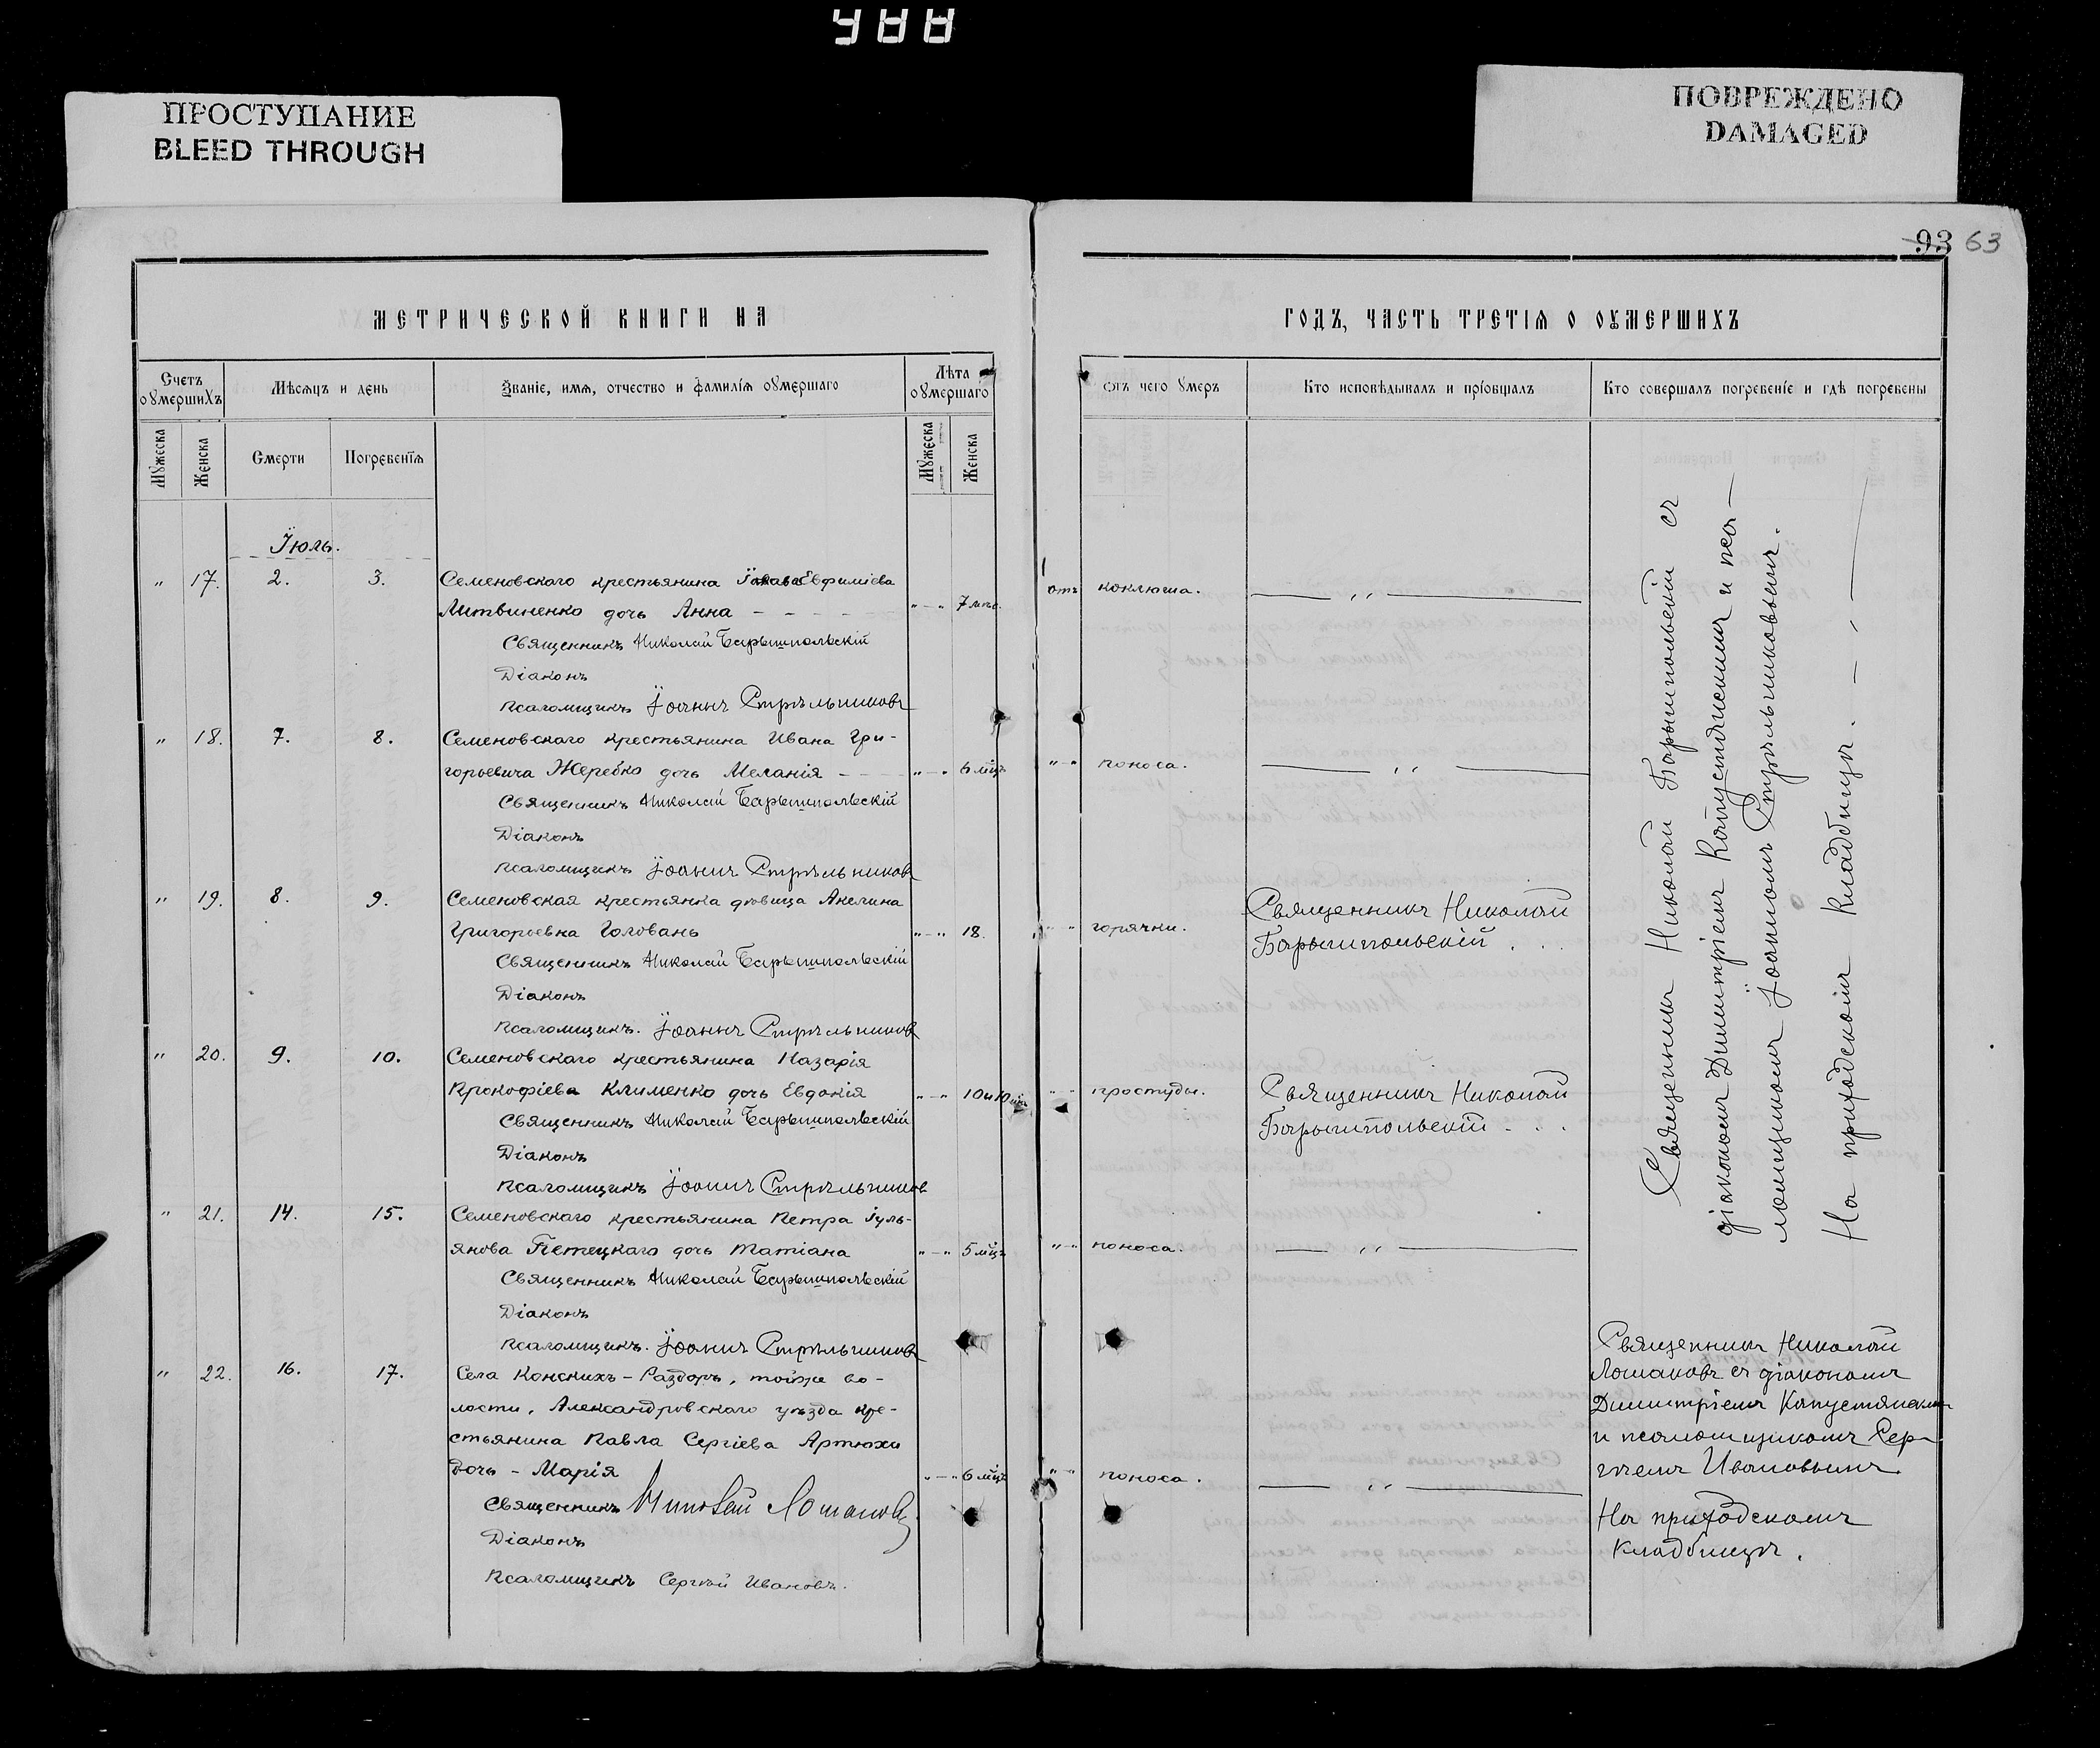 ПРОСТУПАНИЕ
BLEED THROUGH
ПОВРЕЖДЕНО
DAMAGED
93 63
МЕТРИЧЕСКОЙ КНИГИ НА
ГОДЪ, ЧАСТЬ ТРЕТІЯ О ОУМЕРШИХЪ
Счетъ оумершихъ
Мѣсяцъ и день
Званіе, имя, отчество и фамилія оумершаго
Лѣта оумершаго
Отъ чего умеръ
Кто исповѣдывалъ и пріобщалъ
Кто совершалъ погребеніе и гдѣ погребены
Мужеска
Женска
Смерти
Погребенія
Мужеска
Женска
Іюль.
" 17. 2. 3. Семеновскаго крестьянина Евфиміева
Литвиненко дочь Анна - - - - "-" 7 отъ коклюша. — " —
Священникъ Николай Барышпольскій
Діаконъ
Псаломщикъ Іоаннъ Стрѣльниковъ
" 18. 7. 8. Семеновскаго крестьянина Ивана Гри-
горьевича Жеребко дочь Меланія - - - "-" 6 мѣц. "-" поноса. — " —
Священникъ Николай Барышпольскій
Діаконъ
Псаломщикъ Іоаннъ Стрѣльниковъ
" 19. 8. 9. Семеновская крестьянка дѣвица Акелина
Григорьевна Головань "-" 18. "-" горячки. Священникъ Николай
Барышпольскій . . .
Священникъ Николай Барышпольскій
Діаконъ
Псаломщикъ. Іоаннъ Стрѣльниковъ
" 20. 9. 10. Семеновскаго крестьянина Назарія
Прокофіева Клименко дочь Евдокія "-" 10 и 10 "-" простуды. Священникъ Николай
Барышпольскій . . .
Священникъ Николай Барышпольскій
Діаконъ
Псаломщикъ Іоаннъ Стрѣльников
" 21. 14. 15. Семеновскаго крестьянина Петра Іуль-
янова Петецкаго дочь Татіана "-" 5 мѣц. "-" поноса. — " —
Священникъ Николай Барышпольскій
Діаконъ
Псаломщикъ. Іоаннъ Стрѣльниковъ
Священникъ Николай Барышпольскій съ
діакономъ Димитріемъ Капустянскимъ и пса-
ломщикомъ Іоанномъ Стрѣльниковымъ.
На приходскомъ кладбищѣ. - , -
" 22. 16. 17. Села Конскихъ-Раздоръ, тойже во-
лости, Александровскаго уѣзда кре-
стьянина Павла Сергіева Артюхи
дочь - Марія "-" 6 мѣц. "-" поноса. — " —
Священникъ Николай Лошаковъ
Діаконъ
Псаломщикъ Сергѣй Ивановъ.
Священникъ Николай
Лошаковъ съ діакономъ
Димитріемъ Капустянскимъ
и псаломщикомъ Сер-
гѣемъ Ивановымъ.
На приходскомъ
кладбищѣ.